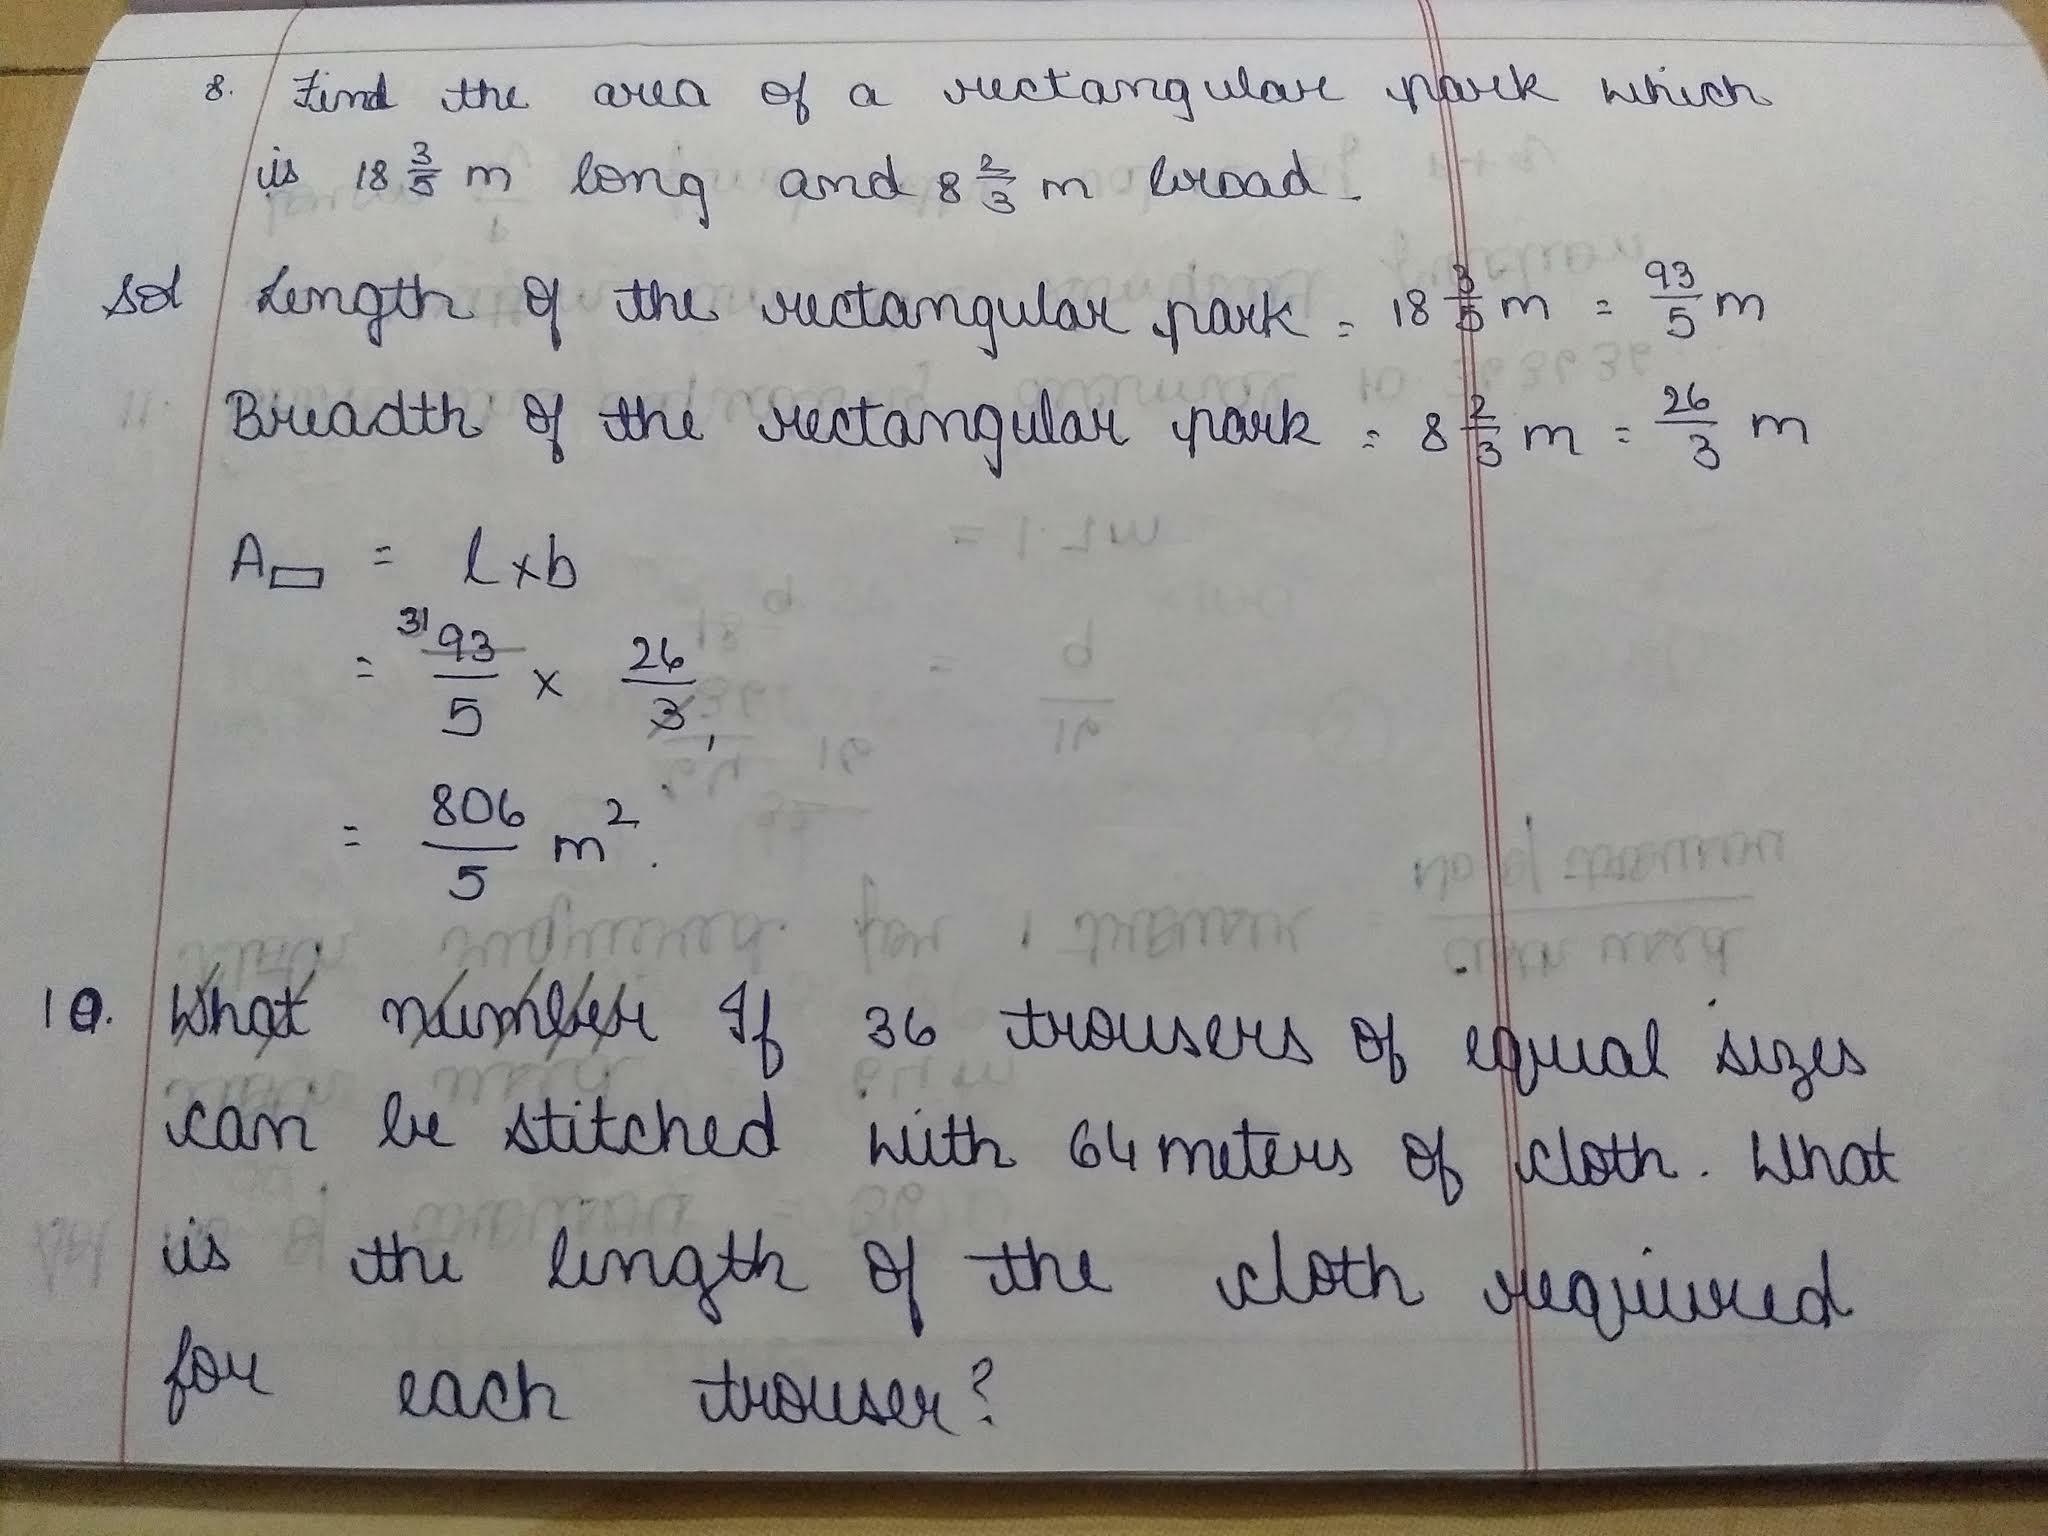 8. Find the area of a rectangular park which
is 18 3/5 m long and 8 2/3 m broad.
Sol Length of the rectangular park = 18 3/5 m = 93/5 m
Breadth of the rectangular park = 8 2/3 m = 26/3 m
A▭ = l×b
= 31 93/5 × 26/3 1
= 806/5 m².
10. What number If 36 trousers of equal sizes
can be stitched with 64 meters of cloth. What
is the length of the cloth required
for each trouser?